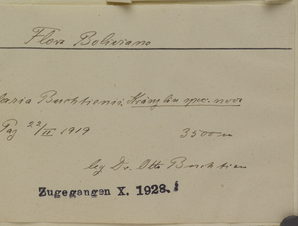 Flora Boliviana
Buchtienii, Kränzlin spec. nova
22/II 1919 3500 m
leg Dr. Otto Buchtien
Zugegangen X. 1928.